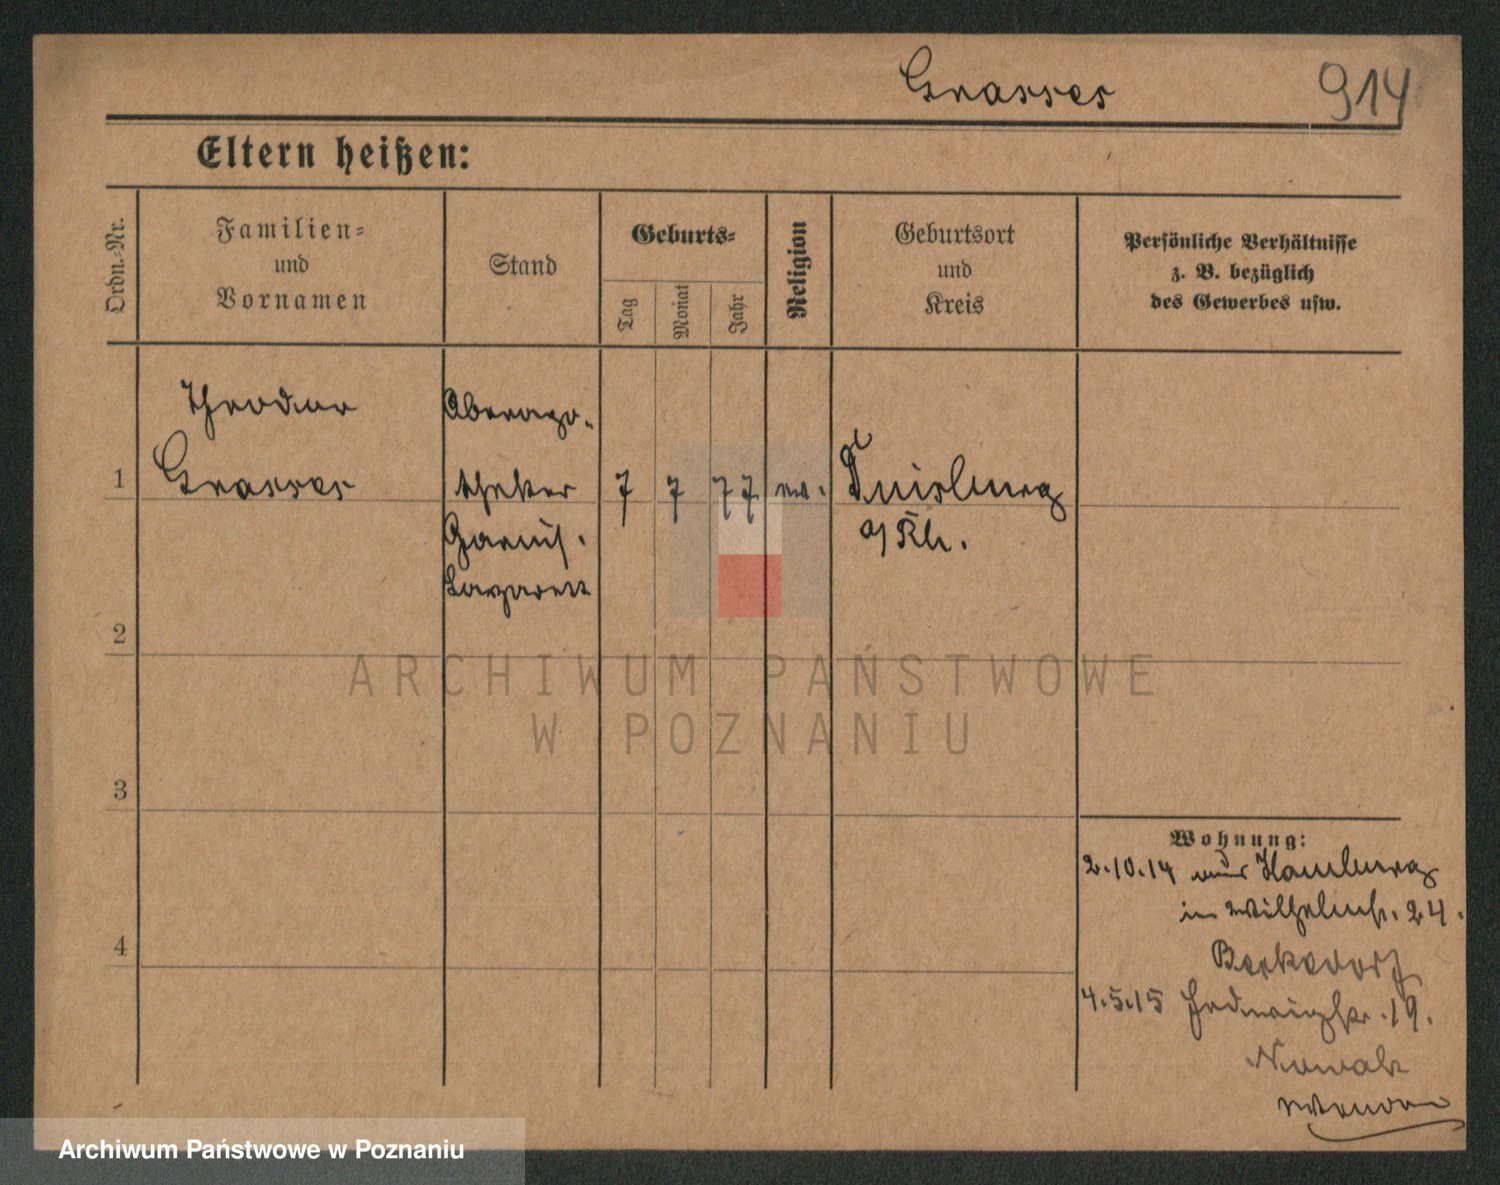 Grasses 914
Eltern heißen:
Ordn.-Nr.
Familien-
und
Vornamen
Stand
Geburts-
Tag
Monat
Jahr
Religion
Geburtsort
und
Kreis
Persönliche Verhältnisse
z. B. bezüglich
des Gewerbes usw.
Theodor
Oberapo-
1 Grasses theker 7 7 77 ev. Duisburg
Garnis. a/Rh.
Lazarett
2
ARCHIWUM PAŃSTWOWE
W POZNANIU
3
4
Wohnung:
2.10.14 aus Hamburg
in Wilhelmstr. 24.
4.5.15 Hedwigstr. 19.
Nowak
Archiwum Państwowe w Poznaniu